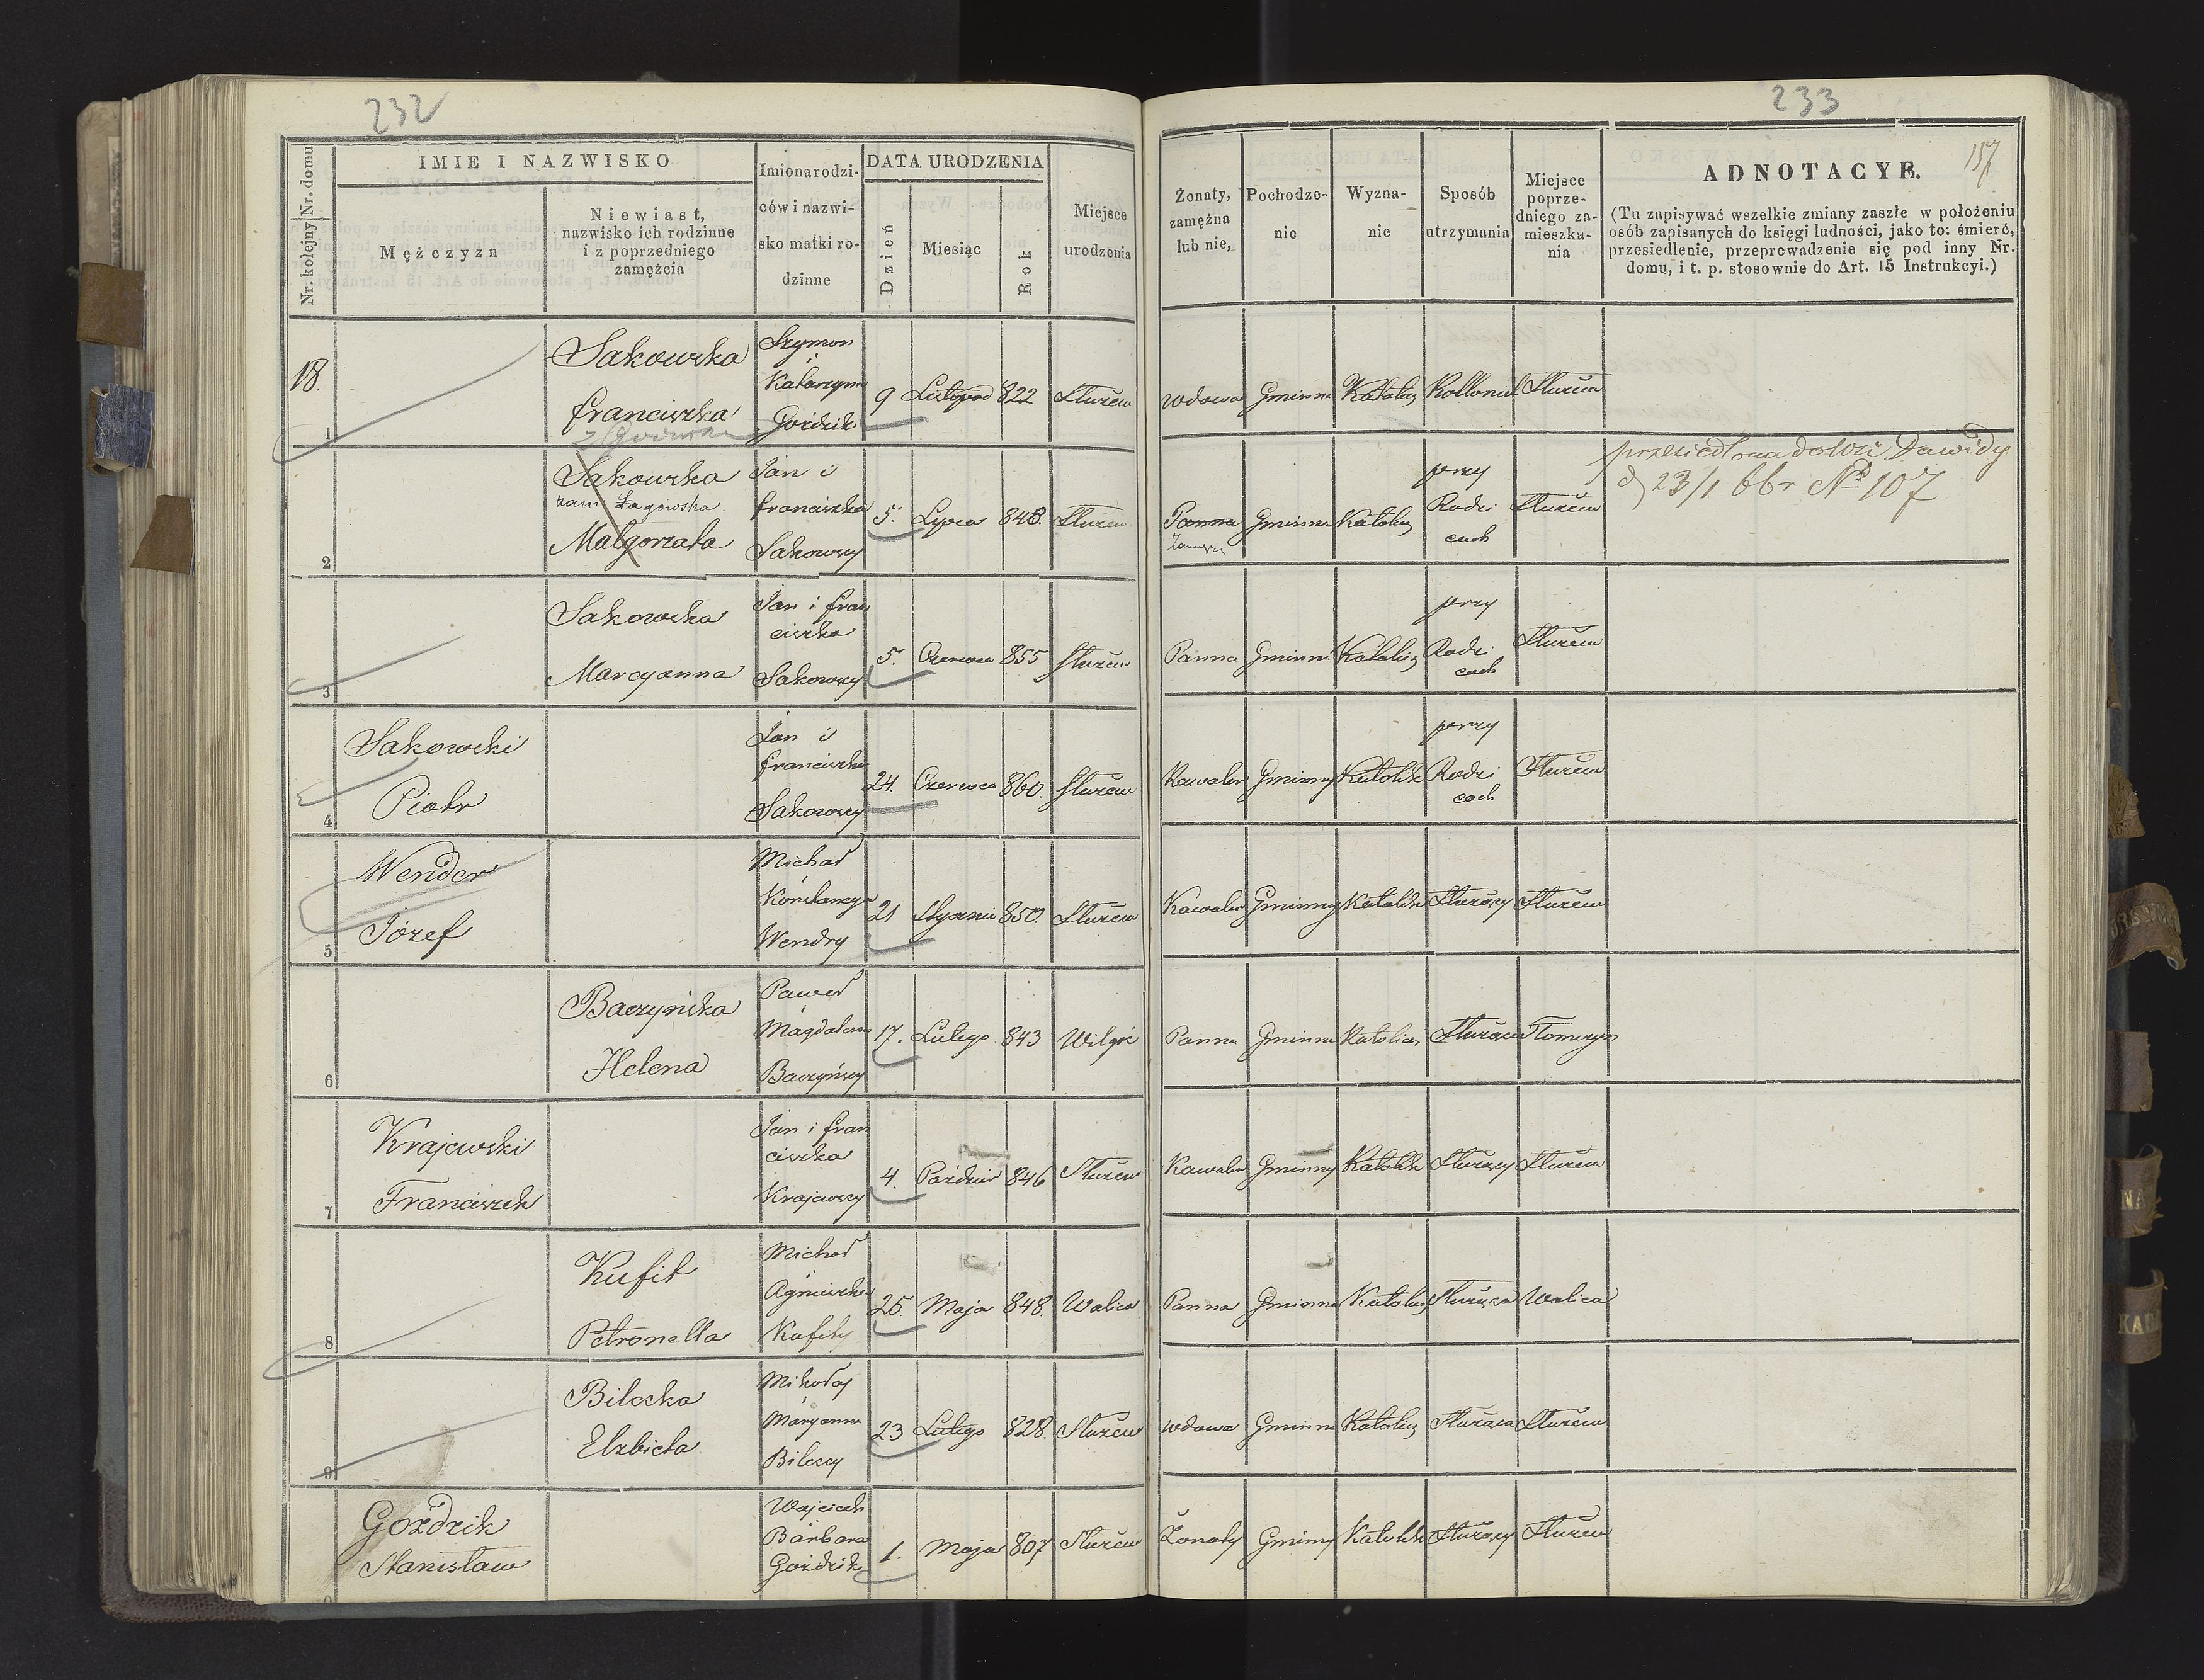 232
Nr. kolejny Nr. domu
IMIE I NAZWISKO
Mężczyzn
Niewiast,
nazwisko ich rodzinne
i z poprzedniego
zamężcia
Imiona rodzi-
ców i nazwi-
sko matki ro-
dzinne
DATA URODZENIA
Dzień
Miesiąc
Rok
Miejsce
urodzenia
233
157
Żonaty,
zamężna
lub nie,
Pochodze-
nie
Wyzna-
nie
Sposób
utrzymania
Miejsce
poprze-
dniego za-
mieszka-
nia
ADNOTACYE.
(Tu zapisywać wszelkie zmiany zaszłe w położeniu
osób zapisanych do księgi ludności, jako to: śmierć,
przesiedlenie, przeprowadzenie się pod inny Nr.
domu, i t. p. stosownie do Art. 15 Instrukcyi.)
18.
1
Sakowska
franciszka
Szymon
i
Katarzyna
Goździk
9 Listopad 822 Służew
wdowa Gminna Katolicz Kollonist Służew
2
Sakowska
zam: Łagowska
Małgorzata
Jan i
franciszka
Sakowscy
5. Lipca 848. Służew
Panna
Gminna Katolicz
przy
Rodzi
cach
Służew
przesiedlona do wsi Dawidy
d 23/1 66r No 107
3
Sakowska
Maryanna
Jan i fran
ciszka
Sakowscy
5. Czerwca 855 Służew
Panna Gminna Katolicz
przy
Rodzi
cach
Służew
4
Sakowski
Piotr
Jan i
franciszka
Sakowscy
24. Czerwca 860. Służew
Kawaler Gminny Katolik
przy
Rodzi
cach
Służew
5
Wender
Józef
Michał
i
Konstancya
Wendry
21 Stycznia 850. Służew
Kawaler Gminny Katolik Służący Służew
6
Baczyńska
Helena
Paweł
i
Magdalena
Baczyńscy
17. Lutego 843 Wilgie
Panna Gminna Katolicz Służąca
7
Krajewski
Franciszek
Jan i fran
ciszka
Krajewscy
4. Paździer 846 Służew
Kawaler Gminny Katolik Służący Służew
8
Kufit
Petronella
Michał
i
Agnieszka
Kufity
25. Maja 848. Wolica
Panna Gminna Katolicz Służąca Wolica
9
Bilecka
Elżbieta
Mikołaj
i
Maryanna
Bileccy
23 Lutego 828. Służew
wdowa Gminna Katolicz Służąca Służew
Goździk
Stanisław
Wojciech
Barbara
Goździk
1. Maja 807 Służew
Żonaty Gminny Katolik Służący Służew